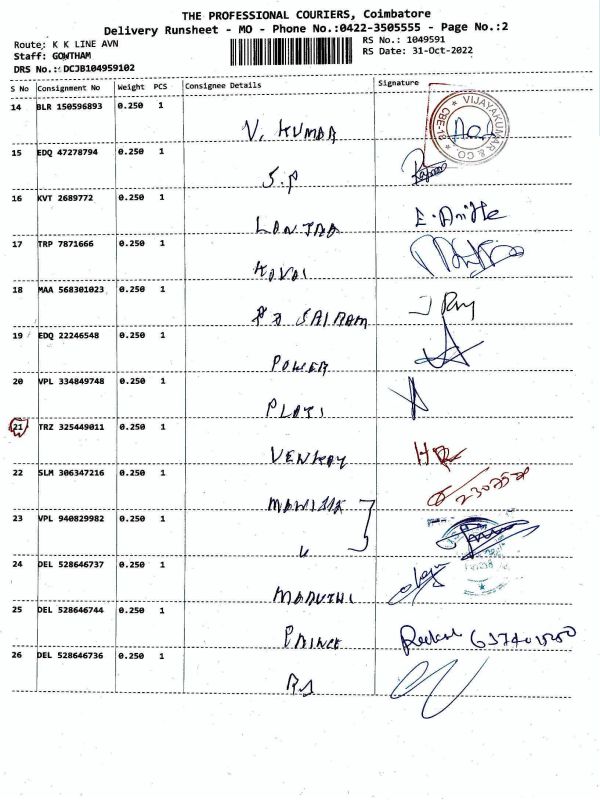 THE PROFESSIONAL COURIERS, Coimbatore
Delivery Runsheet - MO - Phone No.:0422-3505555 - Page No.:2
Route: K K LINE AVN
RS No.: 1049591
Staff: GOWTHAM
RS Date: 31-Oct-2022
DRS No.: DCJB104959102
S No Consignment No Weight PCS Consignee Details Signature
14 BLR 150596893 0.250 1
V. KUMAR
VIJAYAKUMAR & CO. CBE-18
15 EDQ 47278794 0.250 1
S.P
16 KVT 2689772 0.250 1
E. Anitte
17 TRP 7871666 0.250 1
KOVAI
18 MAA 568301023 0.250 1
SAIRAM
J Ray
19 EDQ 22246548 0.250 1
POWER
20 VPL 334849748 0.250 1
PLOTI
21 TRZ 325449011 0.250 1
VENKAY
22 SLM 306347216 0.250 1
23 VPL 940829982 0.250 1
24 DEL 528646737 0.250 1
MARUTHI
25 DEL 528646744 0.250 1
PRINCE
26 DEL 528646736 0.250 1
RS